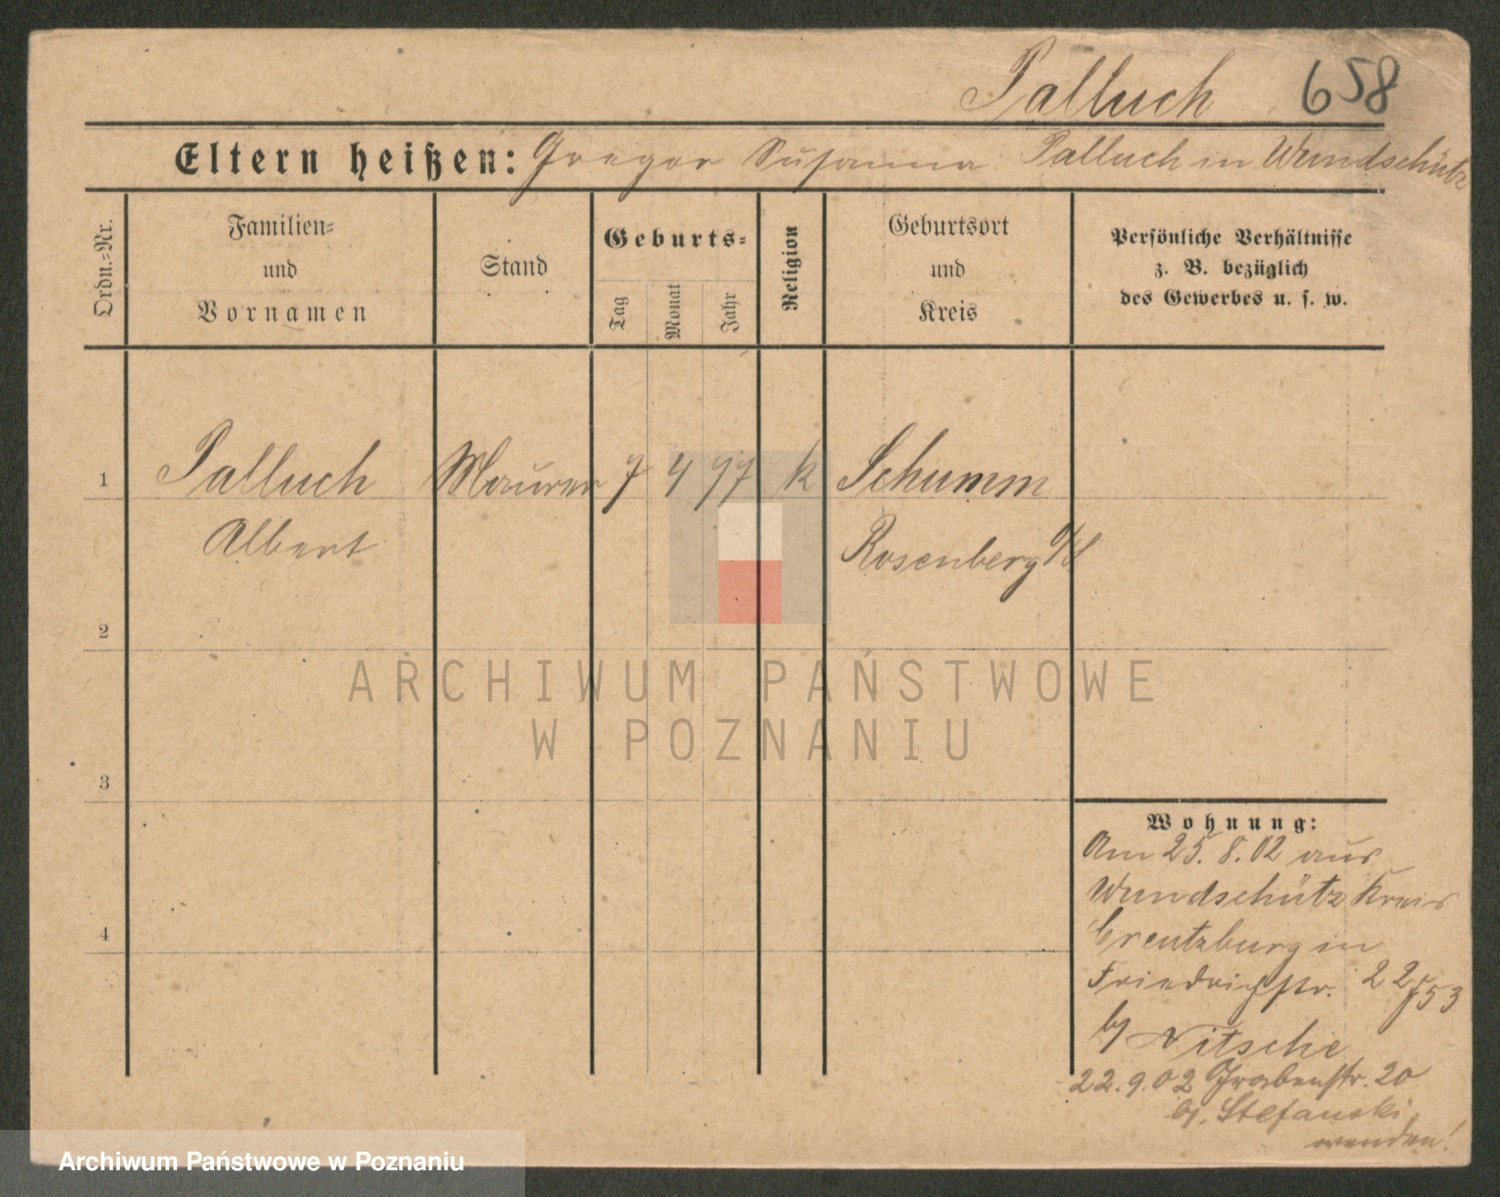 Palluch 658
Eltern heißen: Gregor Susanna Palluch in Wundschütz
Ordn.-Nr.
Familien-
und
Vornamen
Stand
Geburts-
Tag
Monat
Jahr
Religion
Geburtsort
und
Kreis
Persönliche Verhältnisse
z. B. bezüglich
des Gewerbes u. s. w.
1 Palluch Maurer 7 4 77 k Schumm
Albert Rosenberg O/S
2
3
4
Wohnung:
Am 25. 8. 02 aus
Wundschütz Kreis
Creutzburg in
Friedrichstr. 22
bj Nitsche
22.9.02 Grabenstr. 20
bj. Stefanski
wenden!
ARCHIWUM PAŃSTWOWE
W POZNANIU
Archiwum Państwowe w Poznaniu